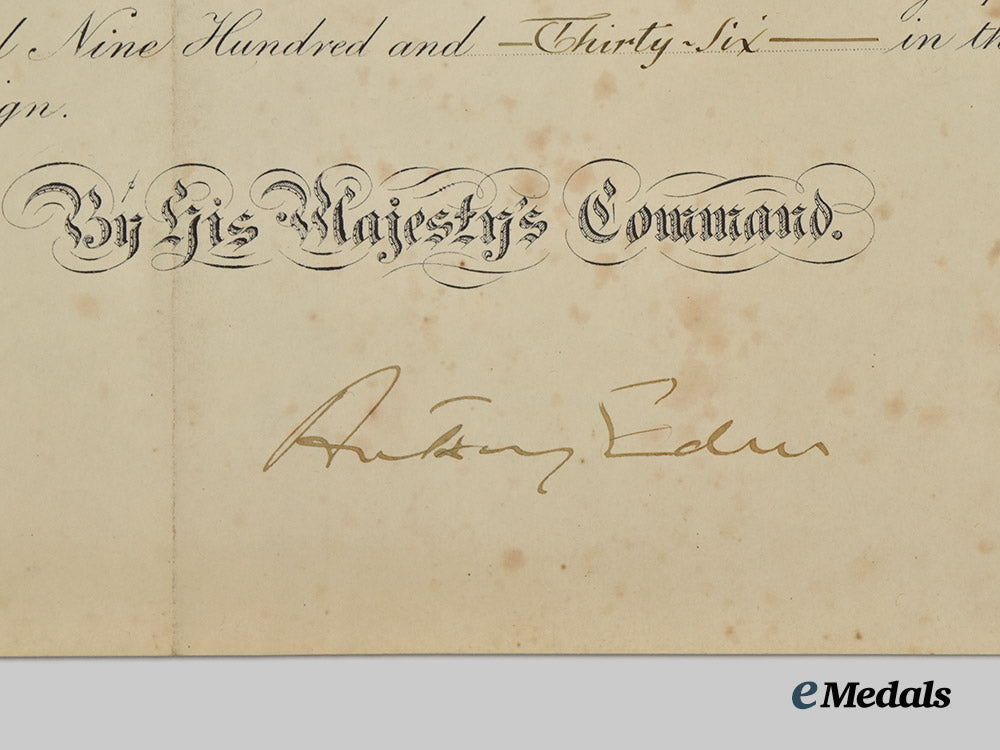 Nine Hundred and —Thirty-Six— in th
ign.
By His Majesty's Command.
Anthony Eden
eMedals